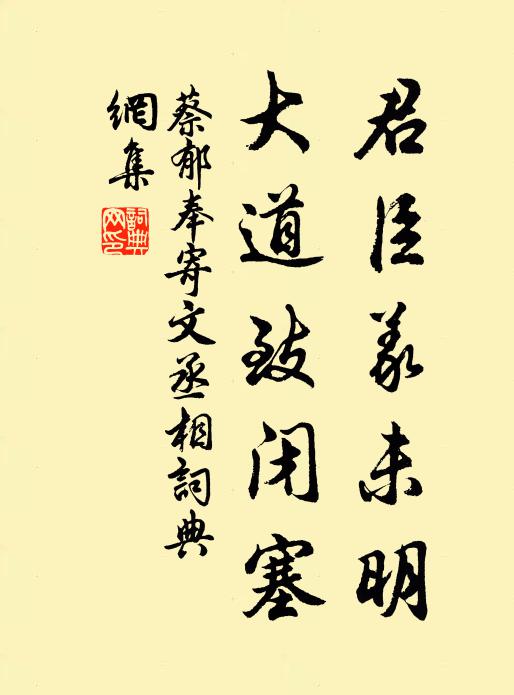 君臣義未明
大道致闭塞
蔡郁奉寄文丞相詞典
網集
詞典網印